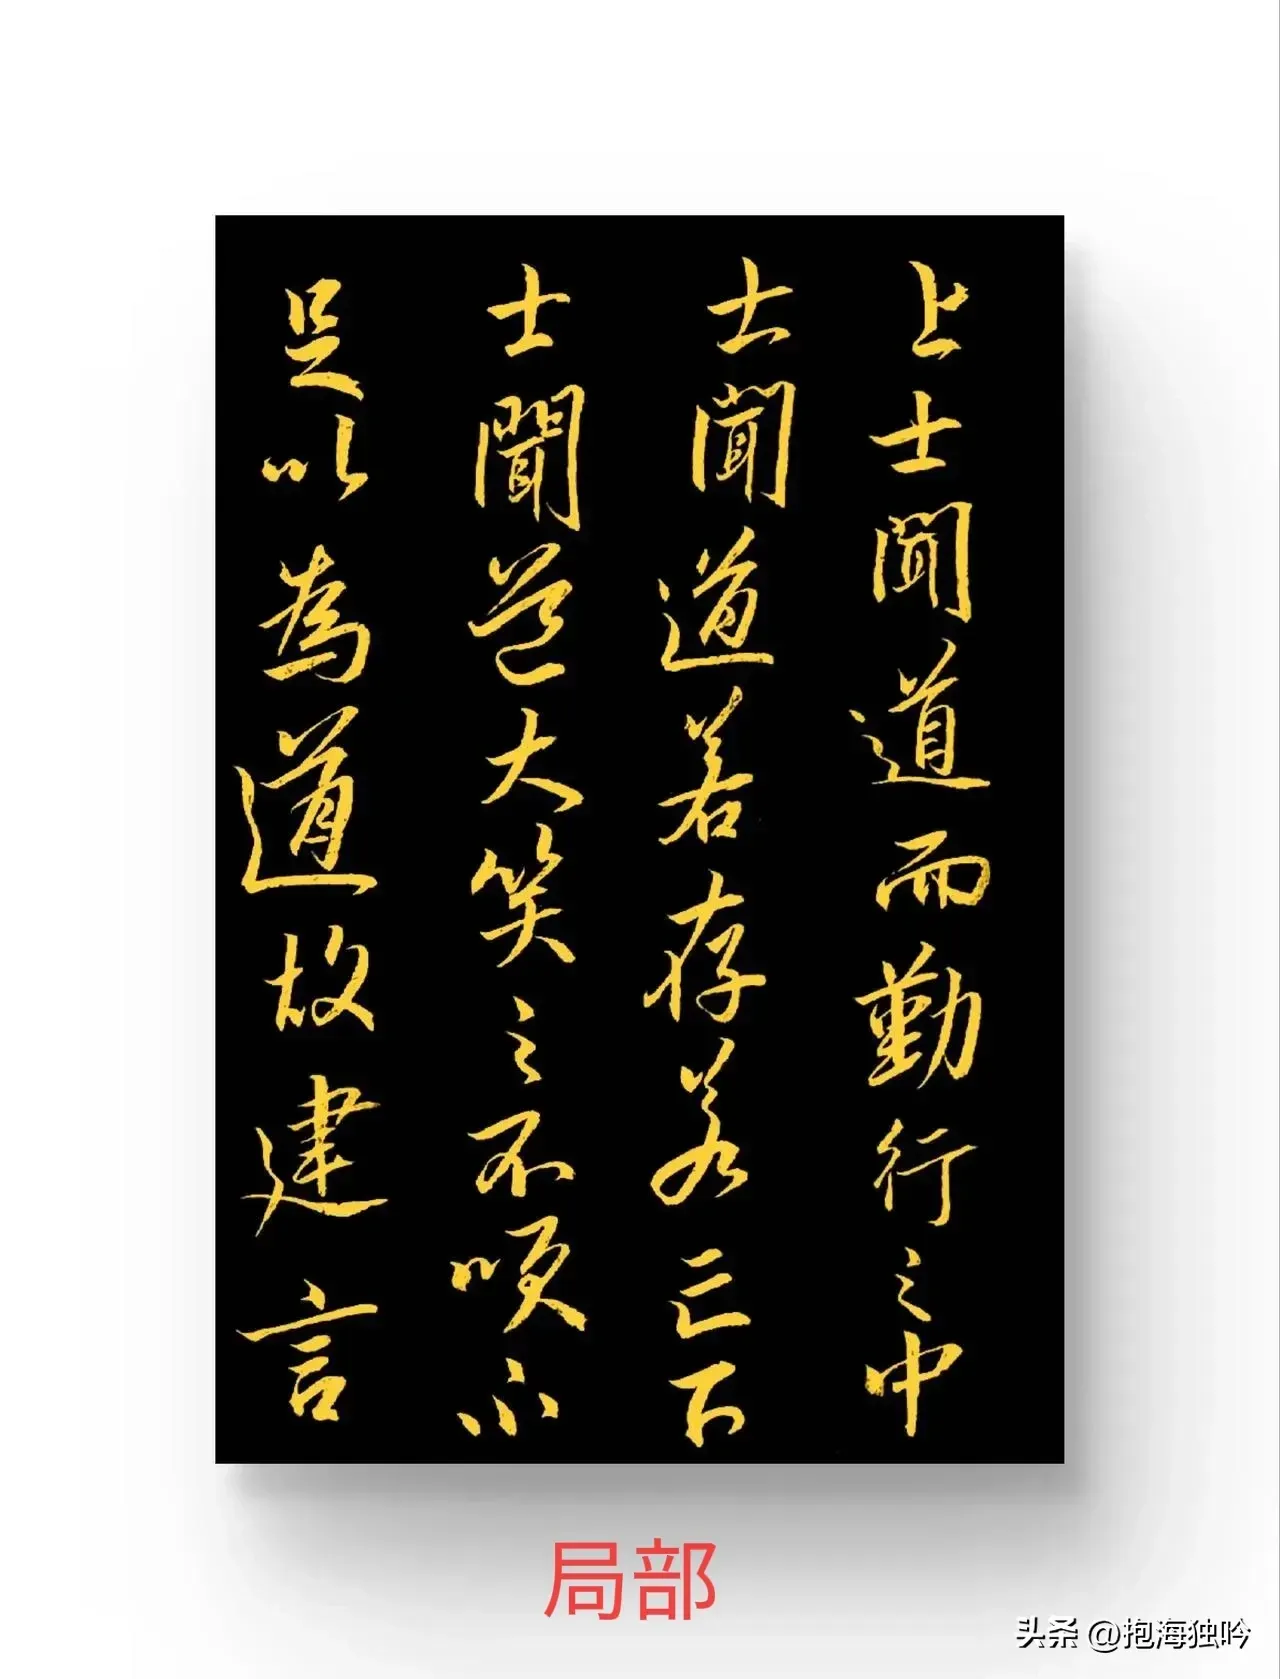 上士聞道而勤行之中
士聞道若存若亡下
士聞道大笑之不咲不
足以為道故建言
局部
头条 @抱海独吟